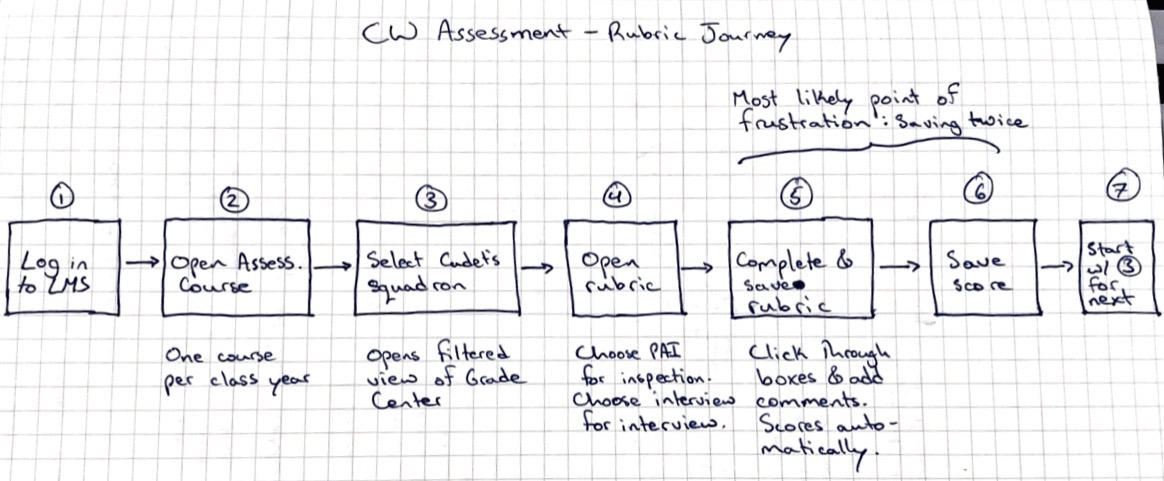 CW Assessment - Rubric Journey
Most likely point of
frustration: Saving twice
①
Log in
to LMS
②
Open Assess.
Course
One course
per class year
③
Select Cadet's
squadron
Opens filtered
view of Grade
Center
④
Open
rubric
Choose PAI
for inspection.
Choose interview
for interview.
⑤
Complete &
save
rubric
Click through
boxes & add
comments.
Scores auto-
matically.
⑥
Save
score
⑦
Start
w/ ③
for
next